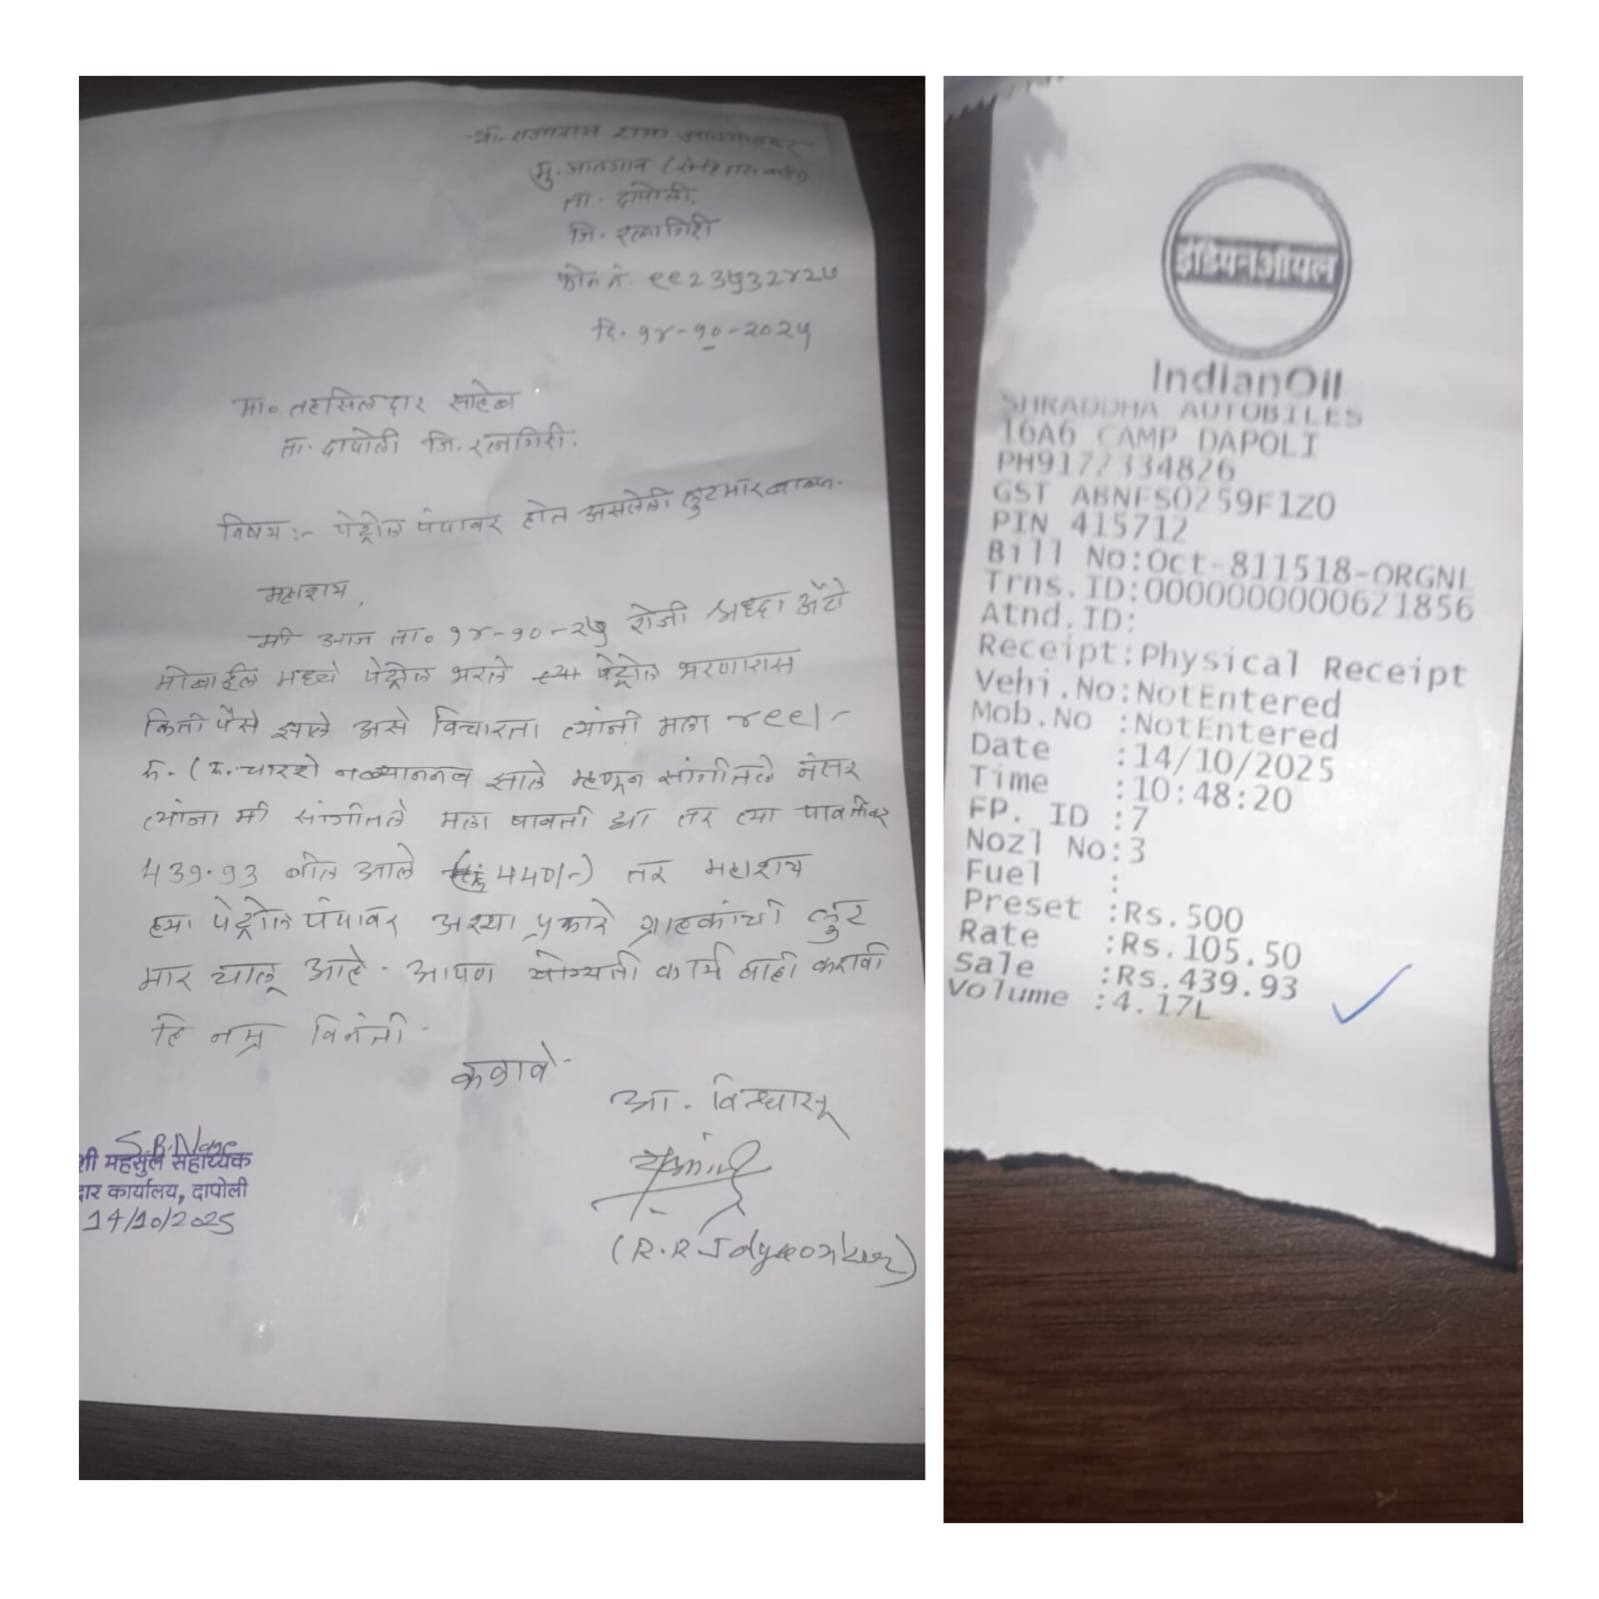 मु. जालगाव
ता. दापोली.
जि. रत्नागिरी
फोन नं. ९९2३५३2४2७
दि. १४-१०-2०2५
मा० तहसिलदार साहेब
ता. दापोली जि. रत्नागिरी.
विषय :- पेट्रोल पंपावर होत असलेली लुटमार बाबत.
महाशय,
मी आज ता० १४-१०-2५ रोजी श्रध्दा ॲटो
मोबाईल मध्ये पेट्रोल भरले त्या पेट्रोल भरणारास
किती पैसे झाले असे विचारता त्यांनी मला ४९९/-
रु. (रु. चारशे नव्याननव झाले म्हणून सांगीतले नंतर
त्यांना मी सांगीतले मला पावती द्या तर त्या पावतीवर
४३९.९३ बील आले 440/-) तर महाशय
ह्या पेट्रोल पंपावर अश्या प्रकारे ग्राहकांची लुट
मार चालू आहे. आपण योग्यती कार्य वाही करावी
हि नम्र विनंती.
कळावे.
आ. विश्वासू
(R.R Jalgaonkar)
S.B.Nage
शी महसुल सहाय्यक
दार कार्यालय, दापोली
14/10/2025
इंडियनऑयल
IndianOil
SHRADDHA AUTOBILES
16A6 CAMP DAPOLI
PH9177334826
GST ABNFS0259F1Z0
PIN 415712
Bill No:Oct-811518-ORGNL
Trns.ID:0000000000621856
Atnd.ID:
Receipt:Physical Receipt
Vehi.No:NotEntered
Mob.No :NotEntered
Date :14/10/2025
Time :10:48:20
FP. ID :7
Nozl No:3
Fuel :
Preset :Rs.500
Rate :Rs.105.50
Sale :Rs.439.93
Volume :4.17L